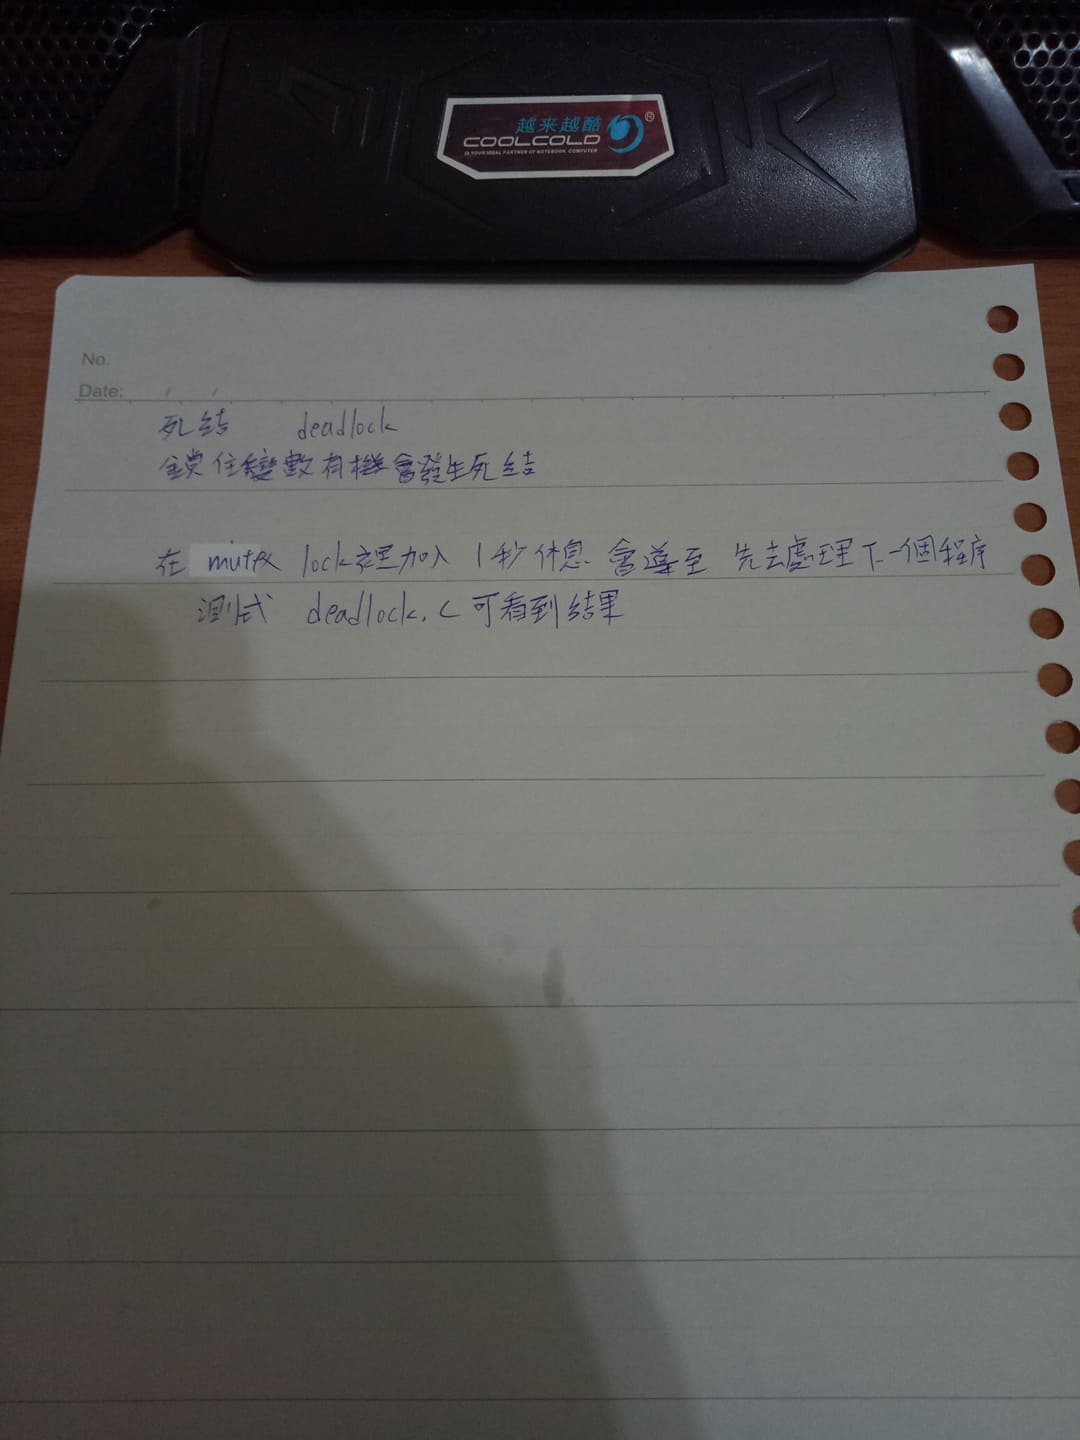 越来越酷 ®
COOLCOLD
IS YOUR IDEAL PARTNER OF NOTEBOOK COMPUTER
No.
Date: / /
死結 deadlock
鎖住變數有機會發生死結
在 mutex lock裡加入 1秒休息 會導至 先去處理下一個程序
測試 deadlock.c 可看到結果